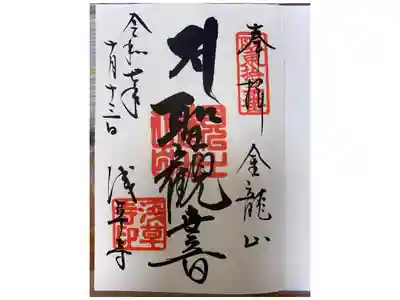 奉拝 金龍山
聖觀世音
令和
十月十三日
浅草寺
浅草寺印